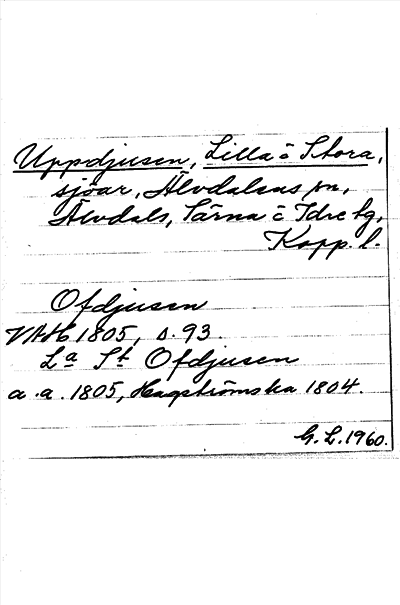 Uppdjusen, Lilla o Stora,
sjöar, Älvdalens sn,
Älvdals, Särna o Idre tg,
Kopp. l.
Ofdjusen
VAH 1805, s. 93.
La St Ofdjusen
a. a. 1805, Hagströmska 1804.
G. L. 1960.